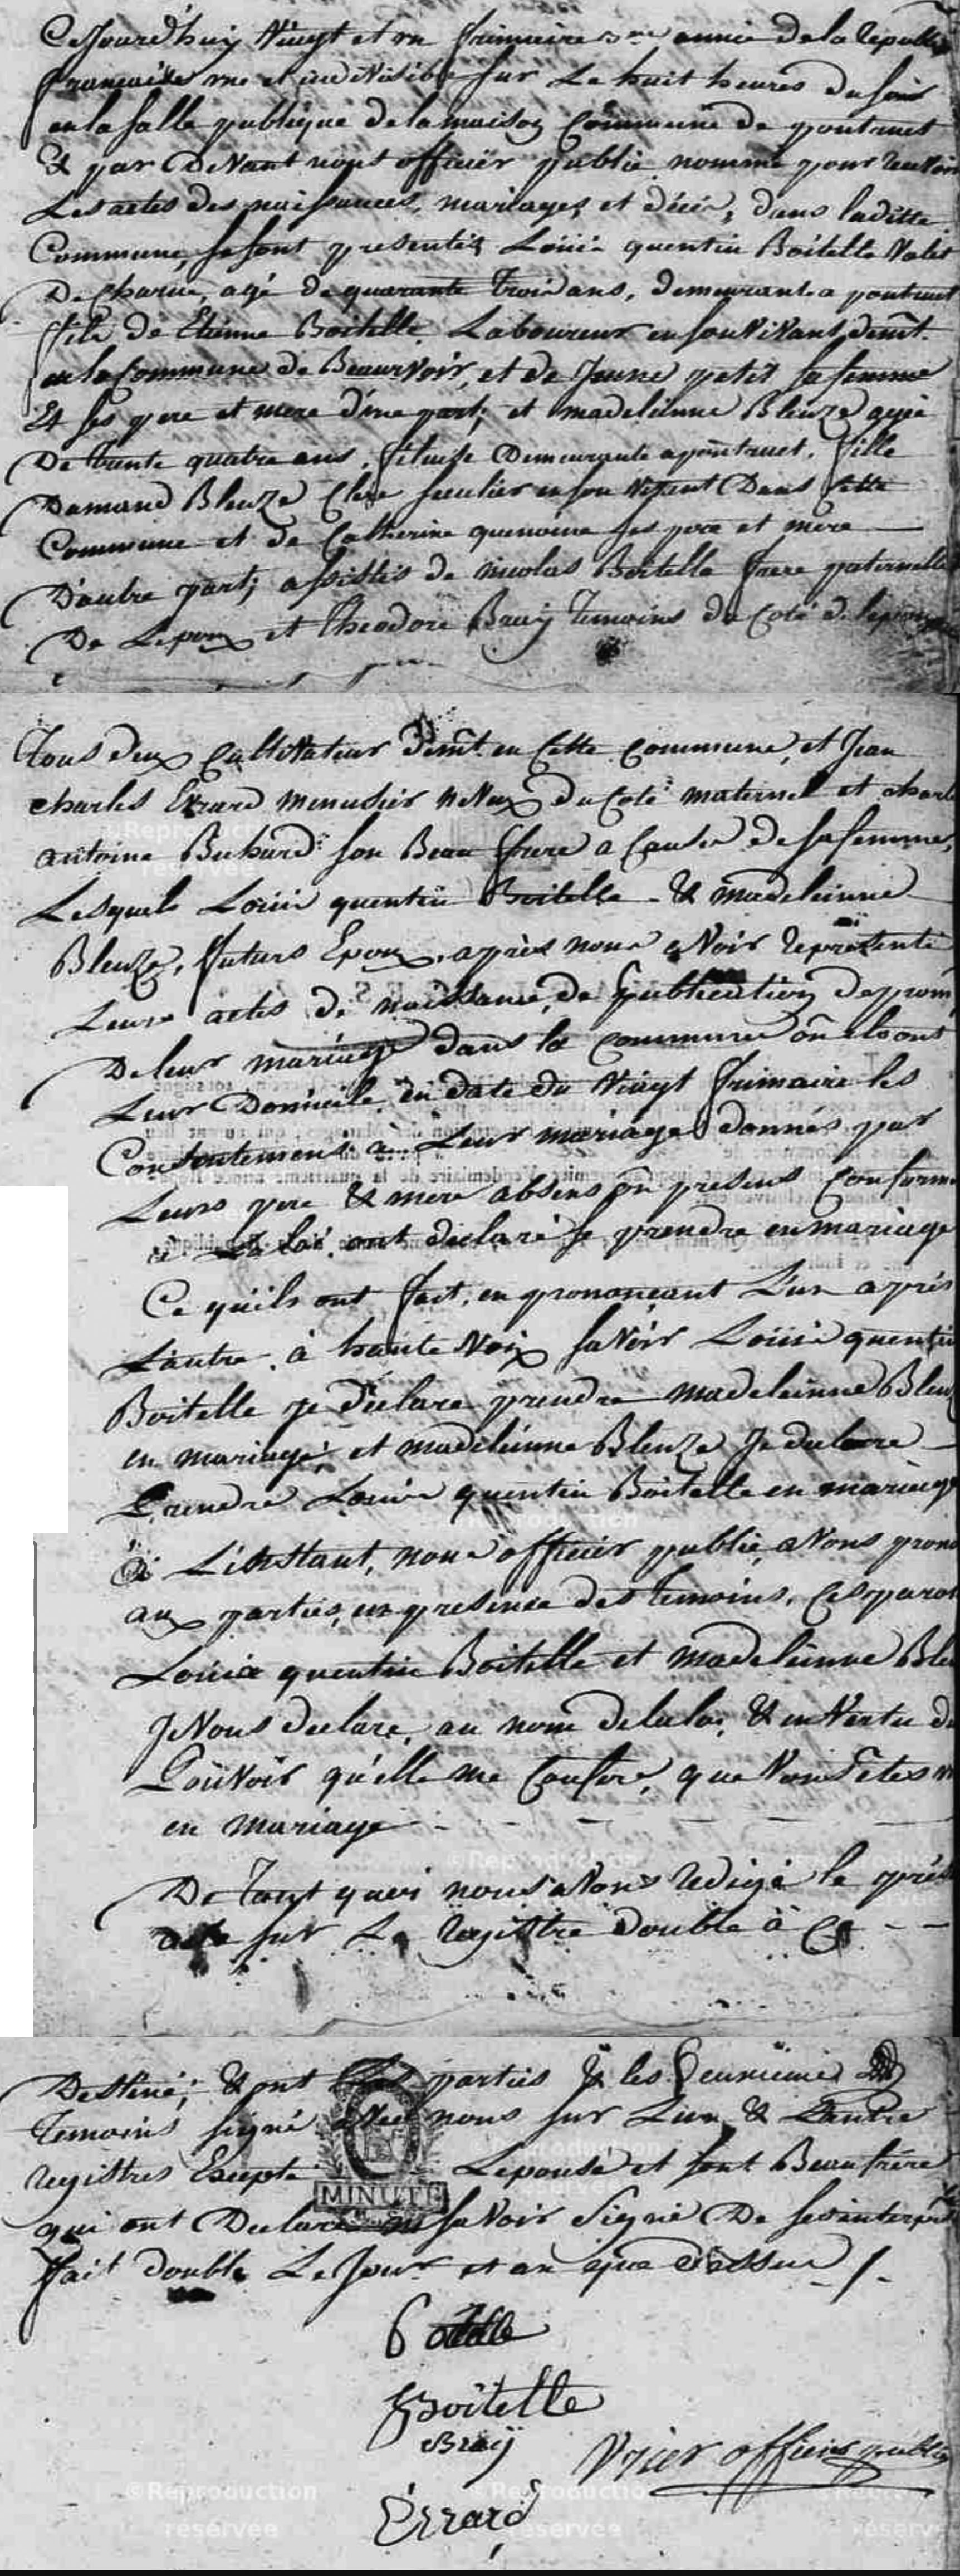 Cejourd'huy Vingt et un frimaire 3me année de la Republi
françaises une et indivisible sur Le huit heures du soir
en la salle publique de la maison Commune de pontruet
& par Devant nous officier public nommé pour recevoir
Les actes des naissances, mariages et décès, dans laditte
Commune, se sont presentés Loüis quentin Boitelle Valet
De Charue, agé de quarante trois ans, demeurant a pontruet
fils de Etienne Boitelle Laboureur en son Vivant demt.
en la Commune de Beaurvoir, et de Jeune petit sa femme
Et ses pere et mere d'une part; et madeleinne Bleuze agée
De trente quatre ans, fileuse Demeurante a pontruet, fille
Damand Bleuze Clere seculier en son Vivant Dans Cette
Commune et de Catherine quenoine ses pere et mere
D'autre part; assistés de nicolas Boitelle frere paternelle
De Lepoux et theodore Bray temoins du Coté de lepoux
Tous deux Cultivateur demt. en Cette Commune, et Jean
charles Errard menusier neveux du Coté maternel et charle
antoine Buhard son Beau frere a Cause de sa femme,
Lesquels Loüis quentin Boitelle - & madeleinne
Bleuze, futurs Epoux, après nous avoir representé
Leurs actes de naissance, de publication de prom
De leur mariage dans la commune ou ils ont
Leur Domicile, en date du Vingt frimaire les
Consentemens à Leur mariage donnés par
Leurs pere & mere absens ou presens Conforme
à La loi, ont déclaré se prendre en mariage
Ce qu'ils ont fait, en prononçant L'un après
L'autre, à haute Voix savoir Loüis quentin
Boitelle je déclare prendre madeleinne Bleuz
en mariage, et madeleinne Bleuze Je declare
Prendre Louis quentin Boitelle en mariage
à L'instant, nous officier public, avons prono
aux parties, en presence des temoins, Ces parol
Louis quentin Boitelle et madeleinne Ble
Je Vous declare, au nom de la loi, & en Vertu du
Pouvoir qu'elle me Confere, que Vous êtes
en mariage - - - - -
De Tout quoi nous avons redigé le prés
acte sur Le registre double à Ce - -
Destiné, & ont Les parties & les
temoins signé avec nous sur L'un & L'autre
registres Excepté Lepouse et son Beau frere
qui ont Declaré ne savoir signé De se interpellé
fait double Le Jour et an que dessus /.
MINUTE
Boitelle
Boitelle
Bray
Vrier officier public
Errard
©Reproduction
réservée